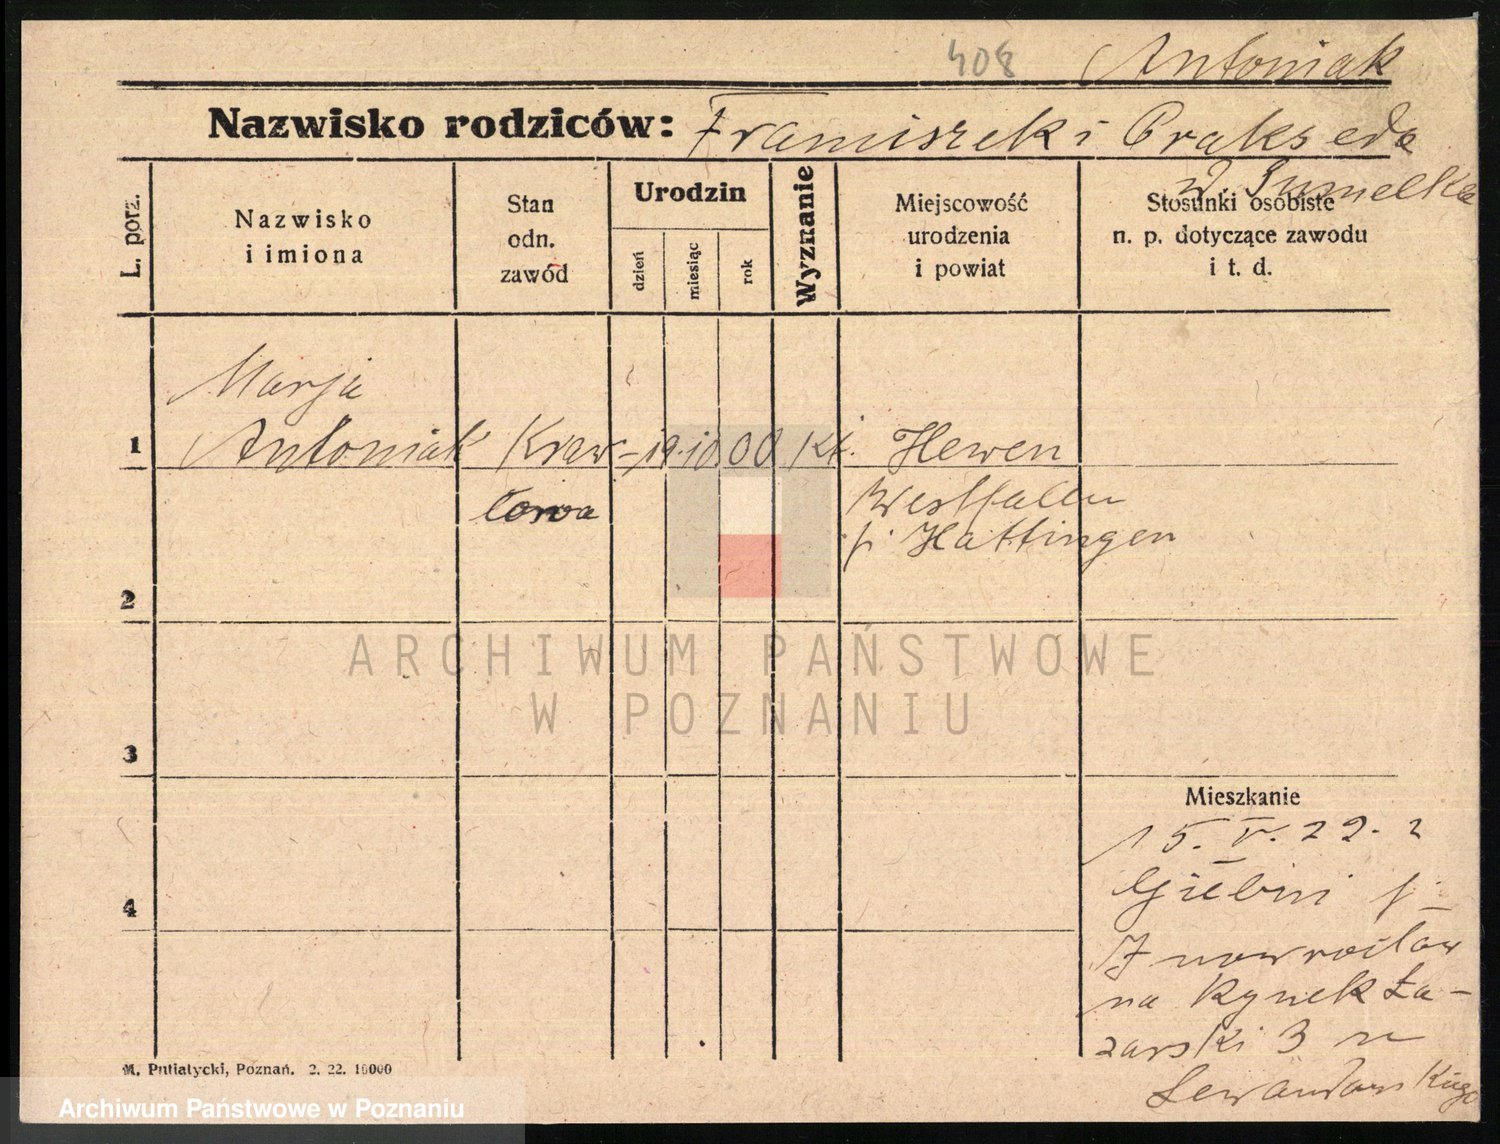 408 Antoniak
Nazwisko rodziców: Franciszek i Prakseda
L. porz.
Nazwisko
i imiona
Stan
odn.
zawód
Urodzin
dzień
miesiąc
rok
Wyznanie
Miejscowość
urodzenia
i powiat
Stosunki osobiste
n. p. dotyczące zawodu
i t. d.
Marja
1 Antoniak Kraw- 19. 10. 00 kt. Hewen
cowa Westfallen
p. Hattingen
2
3
4
Mieszkanie
15. V. 22. z
Giebni p.
Inowrocław
na Rynek Ła-
zarski 3 u
Lewandowskiego
M. Putiatycki, Poznań. 2. 22. 10000
ARCHIWUM PAŃSTWOWE
W POZNANIU
Archiwum Państwowe w Poznaniu